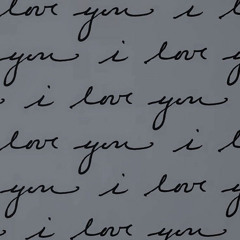 love you i l
you i love
i love you
love you i l
you i love y
i love you